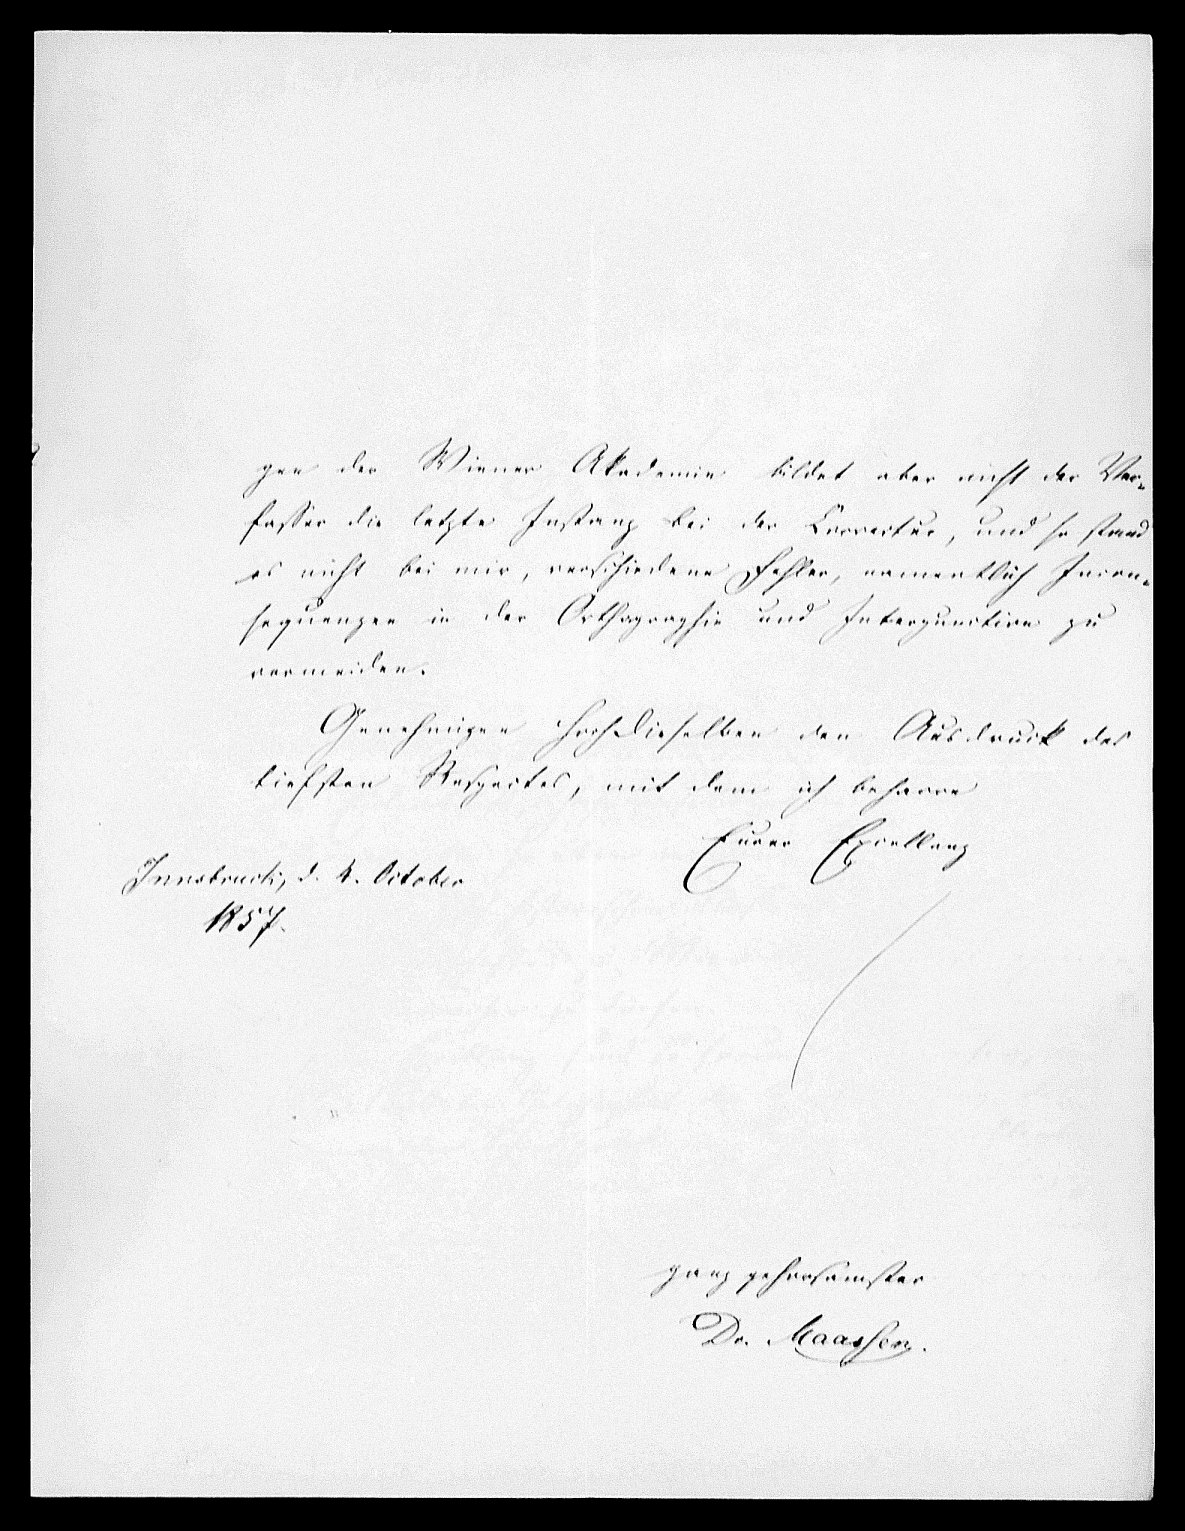 gen der Wiener Akademie bildet aber nicht der Ver-
fasser die letzte Instanz bei der Correctur, und so stand
es nicht bei mir, verschiedene Fehler, namentlich Incon-
sequenzen in der Orthographie und Interpunction zu
vermeiden.
Genehmigen Hochdieselben den Ausdruck des
tiefsten Respectes, mit dem ich beharre
Eurer Excellenz
Innsbruck, d. 4. October
1857.
ganz gehorsamster
Dr. Maassen.